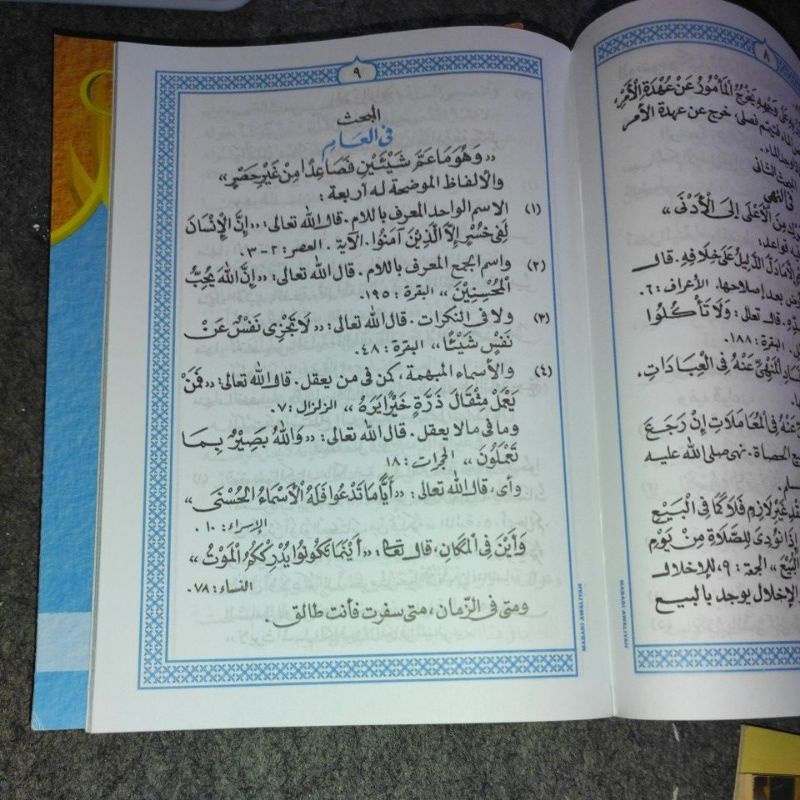 ٩
المبحث
فى العام
«وَهُوَ مَا عَمَّ شَيْئَيْنِ فَصَاعِدًا مِنْ غَيْرِ حَصْرٍ»
والألفاظ الموضحة له أربعة :
(١) الاسم الواحد المعرف باللام. قال الله تعالى: «إِنَّ الْإِنْسَانَ
لَفِى خُسْرٍ إِلاَّ الَّذِيْنَ آمَنُوا. الآية . العصر: ٢ - ٣.
(٢) واسم الجمع المعرف باللام . قال الله تعالى: «إِنَّ اللهَ يُحِبُّ
الْمُحْسِنِيْنَ» البقرة : ١٩٥.
(٣) ولا فى النكرات . قال الله تعالى: «لَا تَجْزِى نَفْسٌ عَنْ
نَفْسٍ شَيْئًا» البقرة : ٤٨.
(٤) والأسماء المبهمة، كمن فى من يعقل. قال الله تعالى: «فَمَنْ
يَعْمَلْ مِثْقَالَ ذَرَّةٍ خَيْرًا يَرَهُ» الزلزال : ٧.
وما فى مالا يعقل. قال الله تعالى: «وَاللهُ بَصِيْرٌ بِمَا
تَعْمَلُوْنَ» الحجرات : ١٨
وأى، قال الله تعالى: «أَيًّا مَا تَدْعُوا فَلَهُ الْأَسْمَاءُ الْحُسْنَى»
الإسراء : ١٠
وَأَيْنَ فِى الْمَكَانِ، قال تعالى: «أَيْنَمَا تَكُوْنُوا يُدْرِكْكُمُ الْمَوْتُ»
النساء : ٧٨.
ومتى فى الزّمان، متى سفرت فأنت طالق.
MABADI AWALIYAH
٨
يَخْرُجُ الْمَأْمُوْرُ عَنْ عُهْدَةِ الْأَمْرِ
فتيمم فصلى، خرج عن عهدة الأمر
المبحث الثانى
فى النهى
مِنَ الْأَعْلَى إِلَى الْأَدْنَى»
قواعد :
الدَّلِيْلُ عَلَى خِلَافِهِ. قال
بعد إصلاحها. الأعراف : ٦.
قال تعالى : وَلَا تَأْكُلُوا
البقرة : ١٨٨.
الْمَنْهِىِّ عَنْهُ فِى الْعِبَادَاتِ.
عَنْهُ فِى الْمُعَامَلَاتِ إِنْ رَجَعَ
الحصاة . نهى صلى الله عليه
غَيْرِ لَازِمٍ فَلَا كَمَا فِى الْبَيْعِ
إِذَا نُوْدِىَ لِلصَّلَاةِ مِنْ يَوْمِ
الْبَيْعَ» الجمعة : ٩، للإخلال
الإخلال يوجد بالبيع
MABADI AWALIYAH